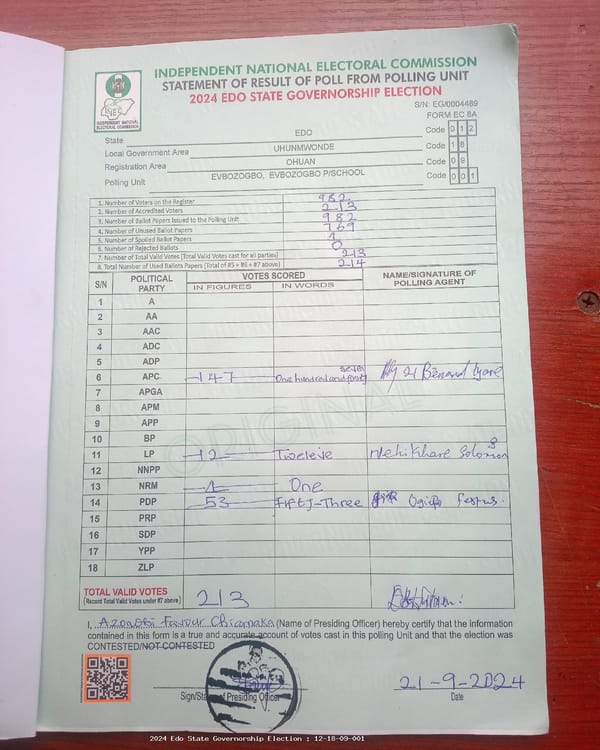 INDEPENDENT NATIONAL ELECTORAL COMMISSION
STATEMENT OF RESULT OF POLL FROM POLLING UNIT
2024 EDO STATE GOVERNORSHIP ELECTION
INEC
INDEPENDENT NATIONAL ELECTORAL COMMISSION
S/N: EG/0004489
FORM EC 8A
State EDO Code 0 1 2
Local Government Area UHUNMWONDE Code 1 8
Registration Area OHUAN Code 0 9
Polling Unit EVBOZOGBO, EVBOZOGBO P/SCHOOL Code 0 0 1
1. Number of Voters on the Register 982
2. Number of Accredited Voters 213
3. Number of Ballot Papers Issued to the Polling Unit 982
4. Number of Unused Ballot Papers 769
5. Number of Spoiled Ballot Papers 1
6. Number of Rejected Ballots 0
7. Number of Total Valid Votes (Total Valid Votes cast for all parties) 213
8. Total Number of Used Ballots Papers (Total of #5 + #6 + #7 above) 214
S/N POLITICAL PARTY VOTES SCORED NAME/SIGNATURE OF POLLING AGENT
IN FIGURES IN WORDS
1 A
2 AA
3 AAC
4 ADC
5 ADP
6 APC 147 One hundred and forty seven
7 APGA
8 APM
9 APP
10 BP
11 LP 12 Twelve Solomon
12 NNPP
13 NRM 1 One
14 PDP 53 Fifty-Three Festus
15 PRP
16 SDP
17 YPP
18 ZLP
ORIGINAL
TOTAL VALID VOTES 213
(Record Total Valid Votes under #7 above)
I, Favour (Name of Presiding Officer) hereby certify that the information
contained in this form is a true and accurate account of votes cast in this polling Unit and that the election was
CONTESTED/NOT CONTESTED
21-9-2024
Sign/Stamp of Presiding Officer Date
2024 Edo State Governorship Election : 12-18-09-001